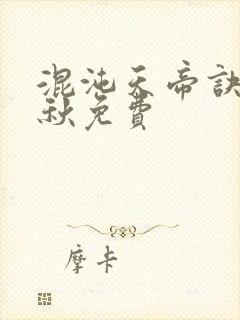 混沌天帝訣
秋免費
摩卡